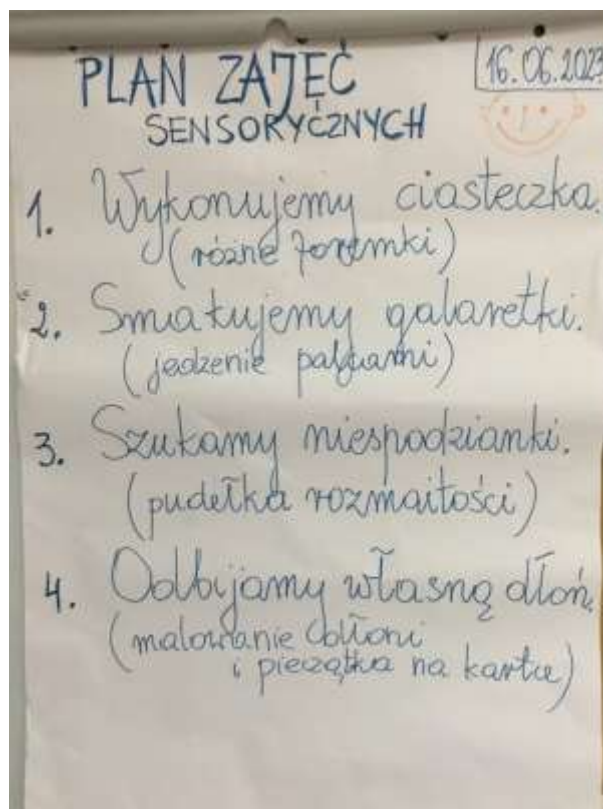 PLAN ZAJĘĆ
16.06.2023
SENSORYCZNYCH
1. Wykonujemy ciasteczka.
(różne foremki)
2. Smakujemy galaretki.
(jedzenie palcami)
3. Szukamy niespodzianki.
(pudełka rozmaitości)
4. Odbijamy własną dłoń.
(malowanie dłoni
i pieczątka na kartce)